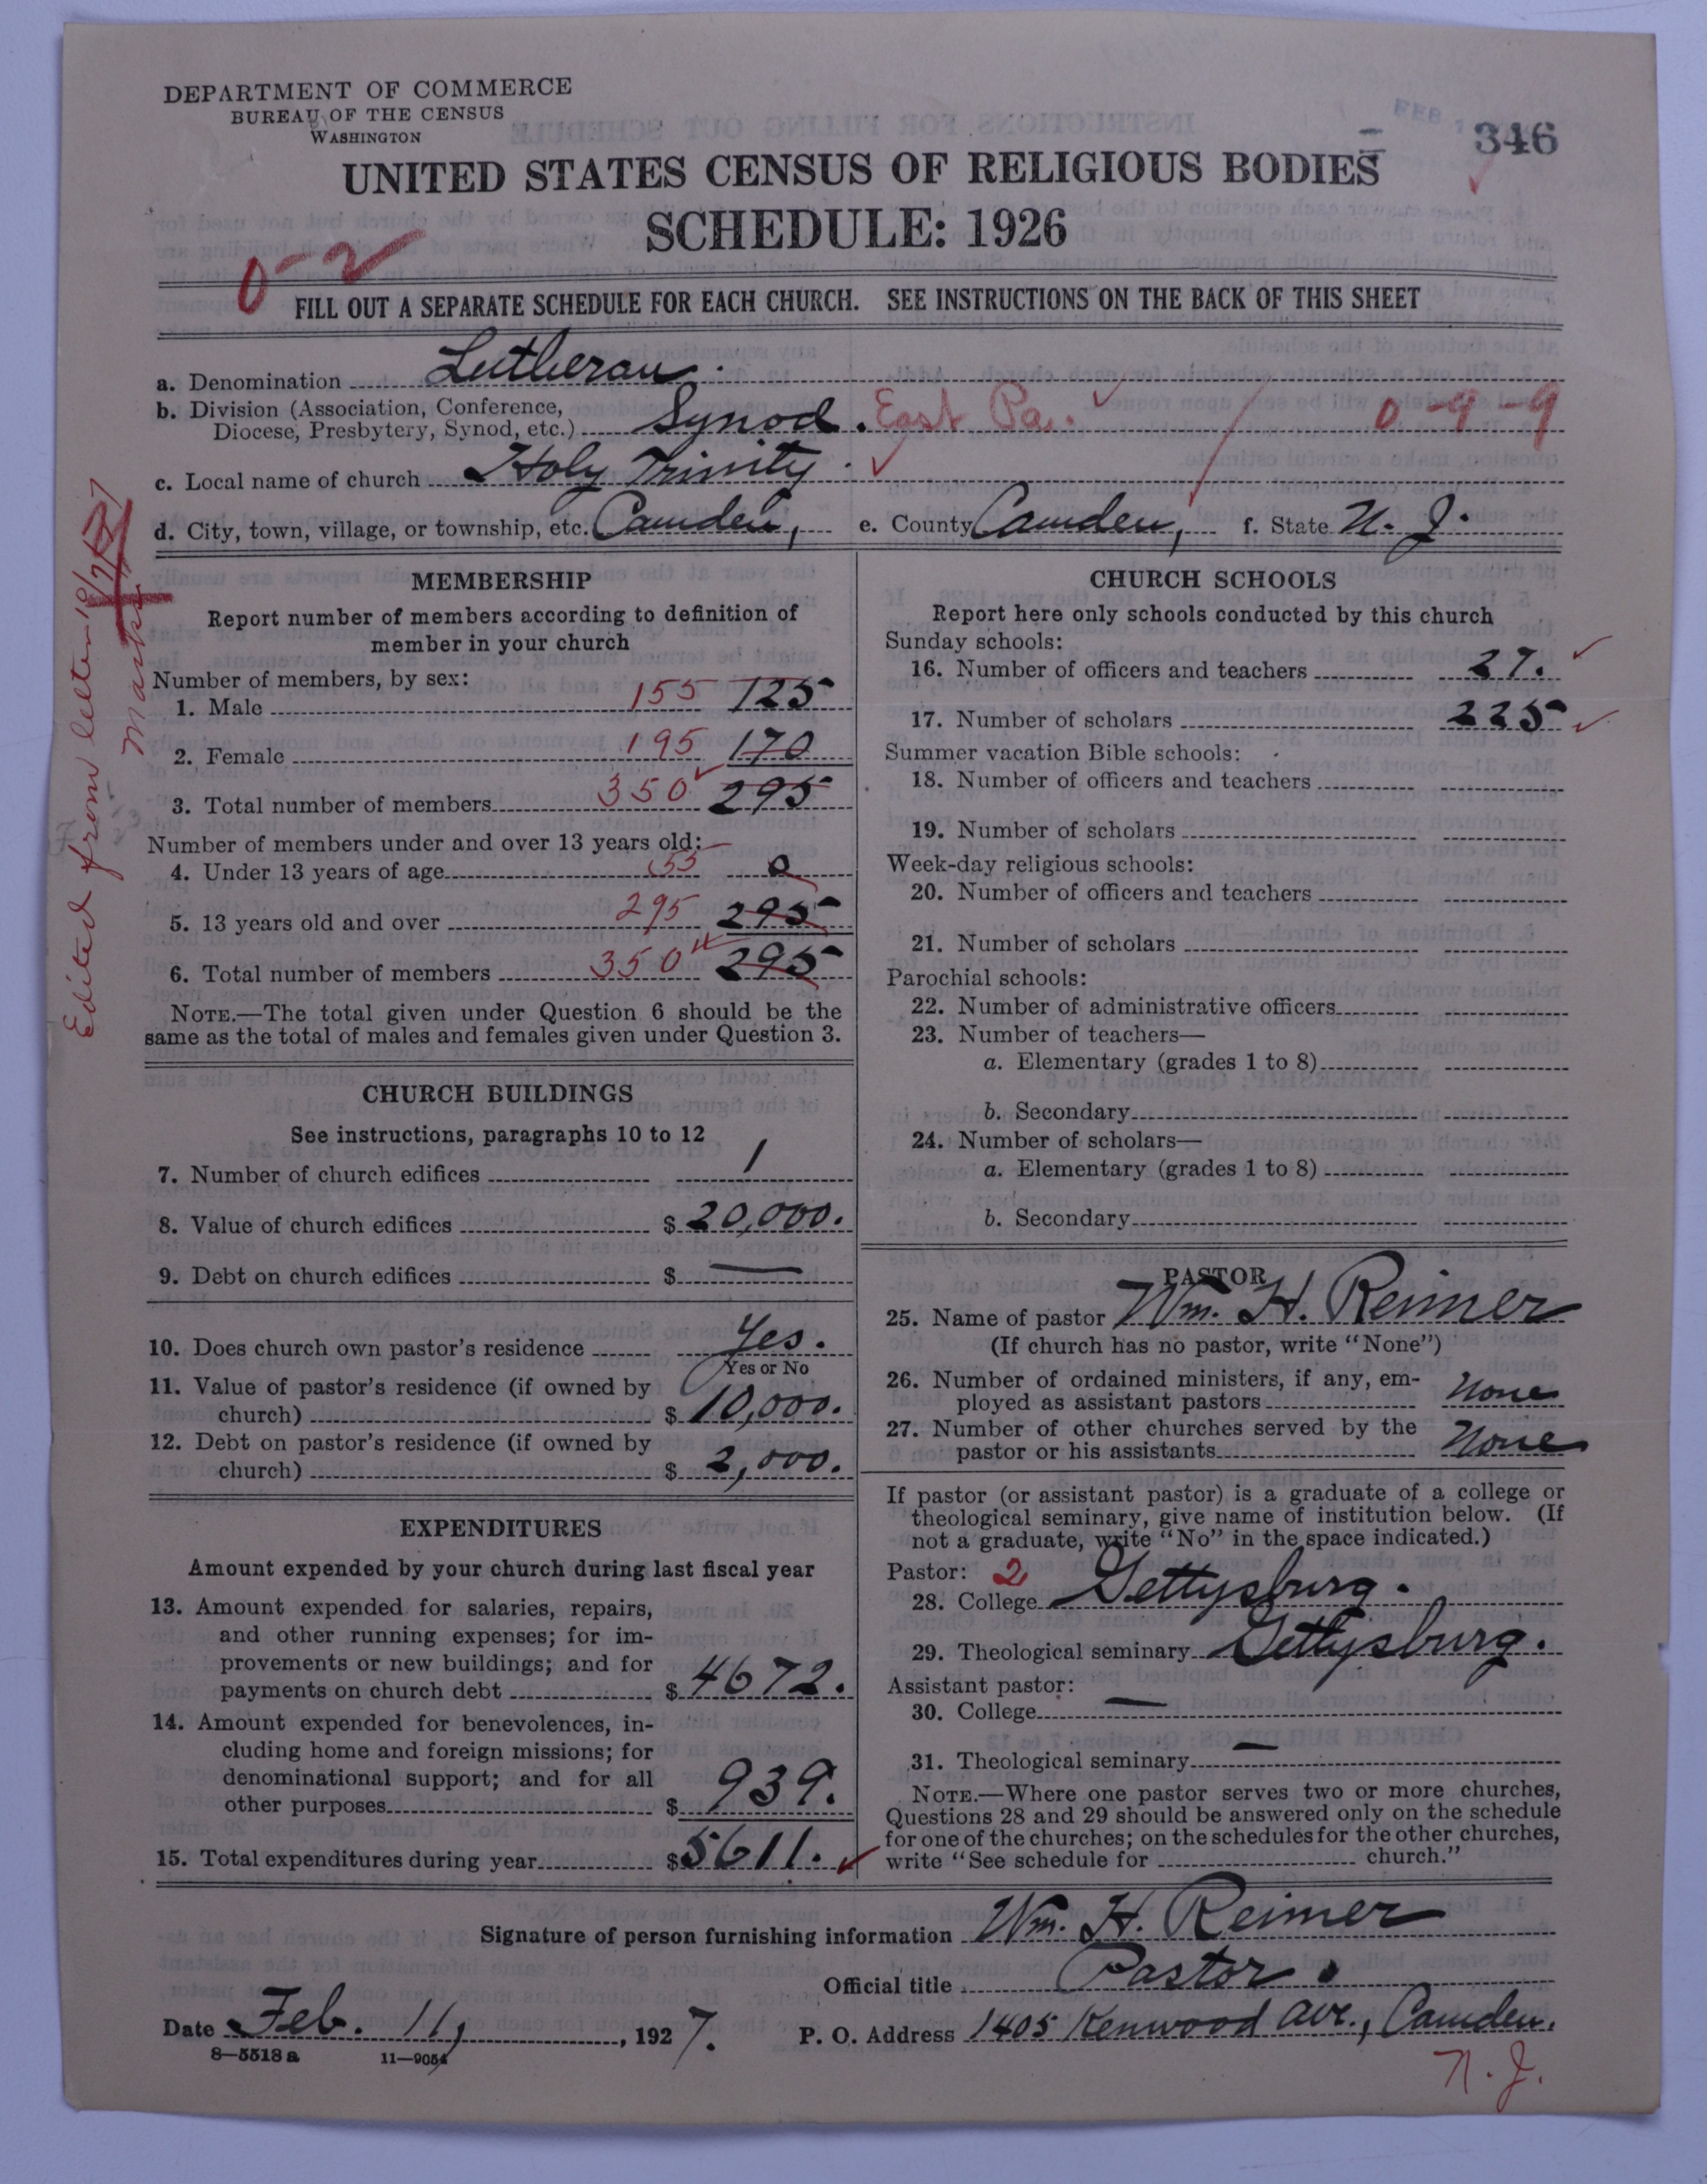 DEPARTMENT OF COMMERCE
BUREAU OF THE CENSUS
WASHINGTON
FEB
346
UNITED STATES CENSUS OF RELIGIOUS BODIES
SCHEDULE: 1926
0-2
FILL OUT A SEPARATE SCHEDULE FOR EACH CHURCH. SEE INSTRUCTIONS ON THE BACK OF THIS SHEET
a. Denomination Lutheran.
b. Division (Association, Conference,
Diocese, Presbytery, Synod, etc.) Synod. East Pa. 0-9-9
c. Local name of church Holy Trinity.
d. City, town, village, or township, etc. Camden, e. County Camden, f. State N. J.
Edited from letter 10/7/27
Marks
MEMBERSHIP
Report number of members according to definition of
member in your church
Number of members, by sex:
1. Male 155 125
2. Female 195 170
3. Total number of members 350 295
Number of members under and over 13 years old:
4. Under 13 years of age 55 0
5. 13 years old and over 295 295
6. Total number of members 350 295
NOTE.—The total given under Question 6 should be the
same as the total of males and females given under Question 3.
CHURCH BUILDINGS
See instructions, paragraphs 10 to 12
7. Number of church edifices 1
8. Value of church edifices $ 20,000.
9. Debt on church edifices $ —
10. Does church own pastor's residence Yes.
Yes or No
11. Value of pastor's residence (if owned by
church) $ 10,000.
12. Debt on pastor's residence (if owned by
church) $ 2,000.
EXPENDITURES
Amount expended by your church during last fiscal year
13. Amount expended for salaries, repairs,
and other running expenses; for im-
provements or new buildings; and for
payments on church debt $ 4672.
14. Amount expended for benevolences, in-
cluding home and foreign missions; for
denominational support; and for all
other purposes $ 939.
15. Total expenditures during year $ 5611.
CHURCH SCHOOLS
Report here only schools conducted by this church
Sunday schools:
16. Number of officers and teachers 27.
17. Number of scholars 225
Summer vacation Bible schools:
18. Number of officers and teachers
19. Number of scholars
Week-day religious schools:
20. Number of officers and teachers
21. Number of scholars
Parochial schools:
22. Number of administrative officers
23. Number of teachers—
a. Elementary (grades 1 to 8)
b. Secondary
24. Number of scholars—
a. Elementary (grades 1 to 8)
b. Secondary
PASTOR
25. Name of pastor Wm. H. Reimer
(If church has no pastor, write "None")
26. Number of ordained ministers, if any, em-
ployed as assistant pastors None
27. Number of other churches served by the
pastor or his assistants None
If pastor (or assistant pastor) is a graduate of a college or
theological seminary, give name of institution below. (If
not a graduate, write "No" in the space indicated.)
Pastor: 2
28. College Gettysburg.
29. Theological seminary Gettysburg.
Assistant pastor:
30. College —
31. Theological seminary —
NOTE.—Where one pastor serves two or more churches,
Questions 28 and 29 should be answered only on the schedule
for one of the churches; on the schedules for the other churches,
write "See schedule for church."
Signature of person furnishing information Wm. H. Reimer
Official title Pastor.
Date Feb. 11, 1927. P. O. Address 1405 Kenwood Ave., Camden.
N. J.
8—5518 a 11—9054